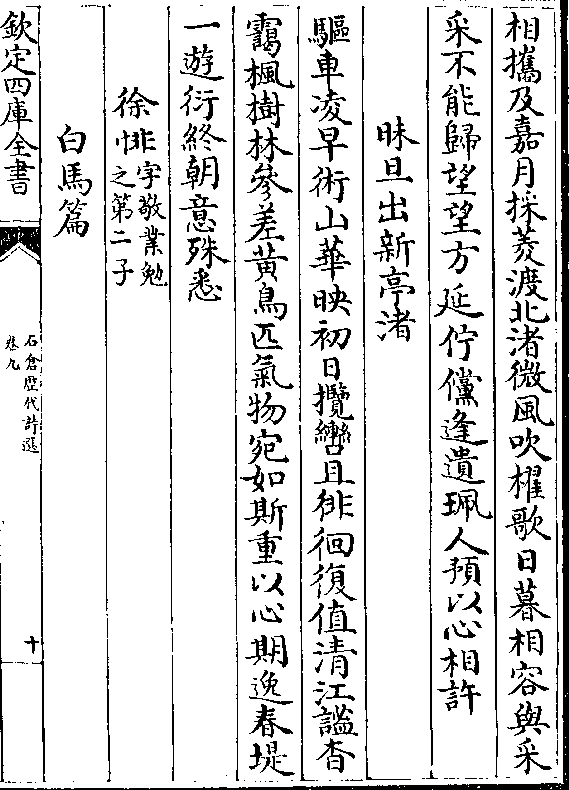 相攜及嘉月採菱渡北渚微風吹櫂歌日暮相容與采
采不能歸望望方延佇儻逢遺珮人預以心相許
昧旦出新亭渚
驅車凌早術山華映初日攬轡且徘徊復值清江謐杳
靄楓樹林參差黃鳥匹氣物宛如斯重以心期逸春堤
一遊衍終朝意殊悉
徐悱字敬業勉之第二子
白馬篇
欽定四庫全書
石倉歴代詩選
卷九
十